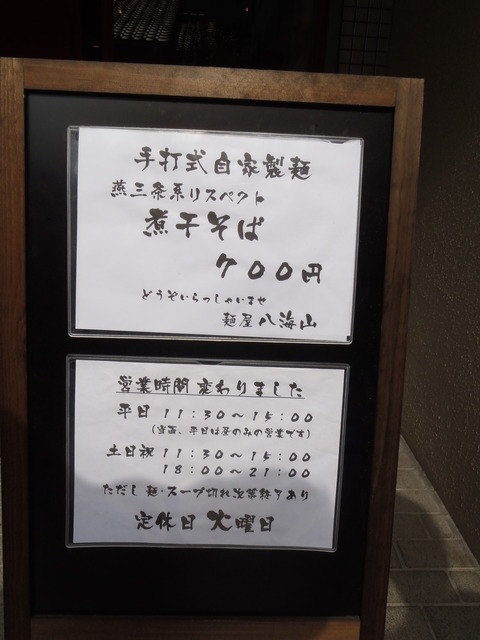 手打式自家製麺
燕三条系リスペクト
煮干そば
700円
どうぞいらっしゃいませ
麺屋 八海山
営業時間 変わりました
平日 11:30～15:00
(当面、平日は昼のみの営業です)
土日祝 11:30～15:00
18:00～21:00
ただし 麺・スープ切れ次第終了あり
定休日 火曜日